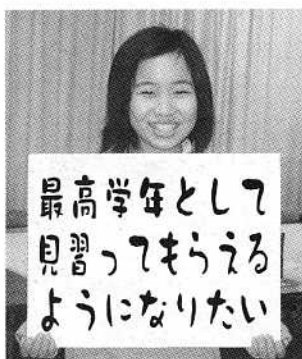 最高学年として
見習ってもらえる
ようになりたい